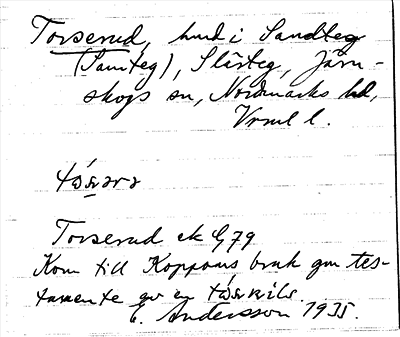 Torserud, hmd i Sandteg
(Santeg), Slärteg, Järn-
skogs sn, Nordmarks hd,
Vrml l.
Torserud ek G 79
Kom till Koppoms bruk gm tes-
tamente av en
E. Andersson 1935.